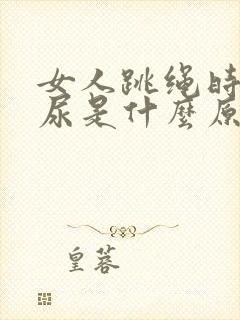 女人跳绳时
尿是什麼原
皇蓉